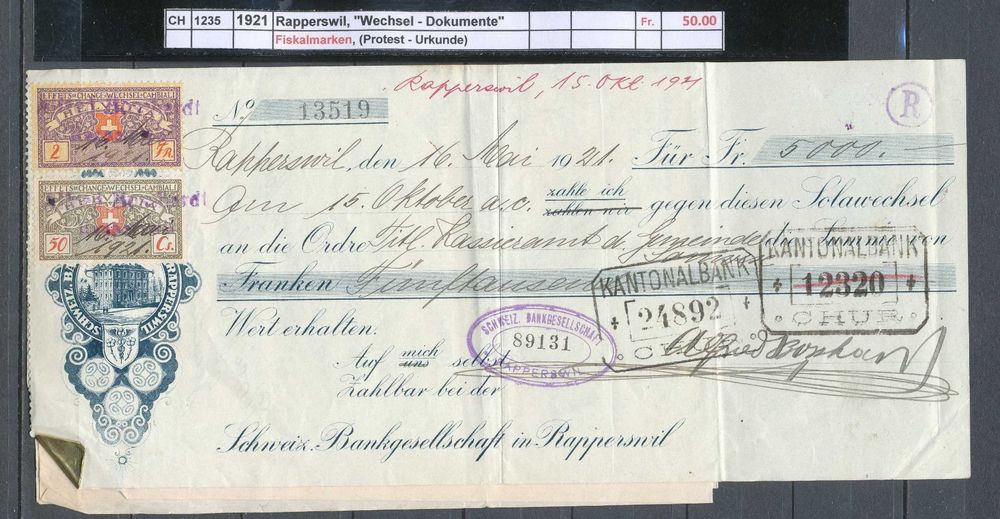 CH 1235 1921 Rapperswil, "Wechsel - Dokumente" Fr. 50.00
Fiskalmarken, (Protest - Urkunde)
Rapperswil, 15. Okt. 1921
EFFETS DE CHANGE WECHSEL CAMBIALI
HELVETIA
2 Fr.
No 13519
R
Rapperswil, den 16. Mai 1921. Für Fr. 5000.-
EFFETS DE CHANGE WECHSEL CAMBIALI
50 Ct.
Am 15. Oktober a.c. zahle ich zahlen wir gegen diesen Solawechsel
an die Ordre Titl. Kassieramt d. Gemeinde die Summe von
Franken Fünftausend
KANTONALBANK
24892
CHUR
KANTONALBANK
12320
CHUR
SCHWEIZ. BANKGESELLSCHAFT
89131
RAPPERSWIL
SCHWEIZ. RAPPERSWIL
Wert erhalten.
Auf mich uns selbst
Zahlbar bei der
Schweiz. Bankgesellschaft in Rapperswil